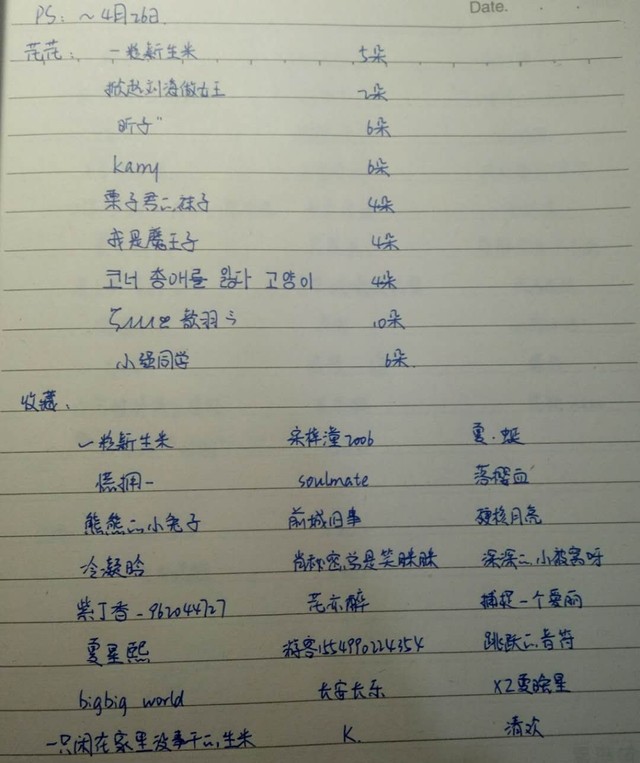 Date.
PS: ~4月26日
花花: 一粒新生米 5朵
掀起刘海做女王 2朵
昕子" 6朵
kamy 6朵
栗子君の袜子 4朵
我是魔王子 4朵
코너 총애를 잃다 고양이 4朵
歆羽 10朵
小强同学 6朵
收藏:
一粒新生米 宋梓潼2006 夏·娗
慌拥- soulmate 落樱血
熊熊の小兔子 前城旧事 硬核月亮
冷凝晗 肖秘密总是笑眯眯 深深の小被窝呀
紫丁香-962044727 花亦醉 捕捉一个爱丽
夏星熙 游客1554990224354 跳跃の音符
bigbig world 长安长乐 XZ夏晗星
一只闲在家里没事干の生米 K. 清欢